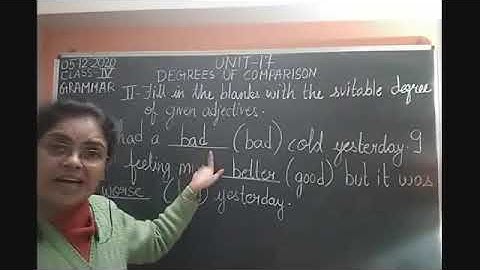 05.12.2020 UNIT-17
CLASS-IV DEGREES OF COMPARISON
GRAMMAR II-Fill in the blanks with the suitable degree
of given adjectives.
had a bad (bad) cold yesterday. I
feeling better (good) but it was
worse yesterday.